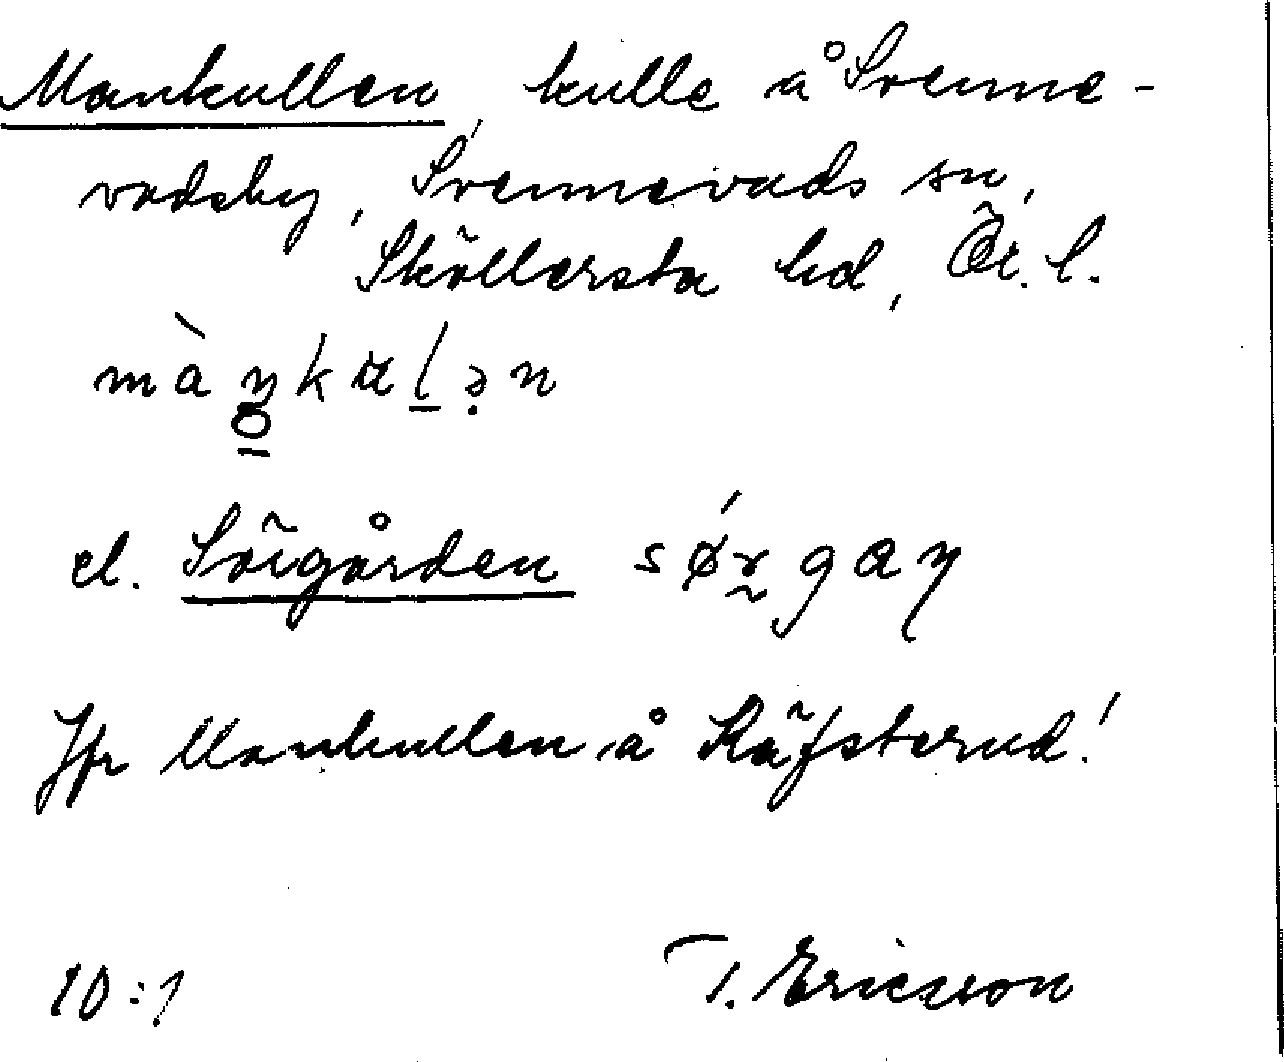 Mankullen, kulle å Svenne-
vadsby, Svennevads sn,
Sköllersta hd, Ör. l.
el. Sörgården
Jfr Mankullen å Käfsterud!
10:1 T. Ericsson